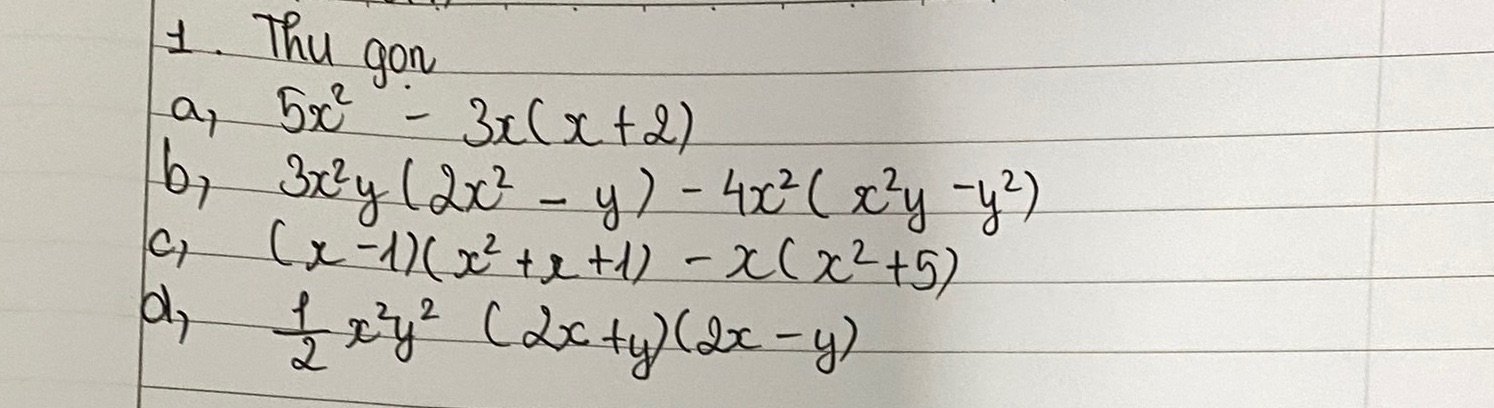 1. Thu gọn
a, 5x² - 3x(x+2)
b, 3x²y(2x² - y) - 4x²(x²y - y²)
c, (x-1)(x²+x+1) - x(x²+5)
d, 1/2 x²y² (2x+y)(2x-y)